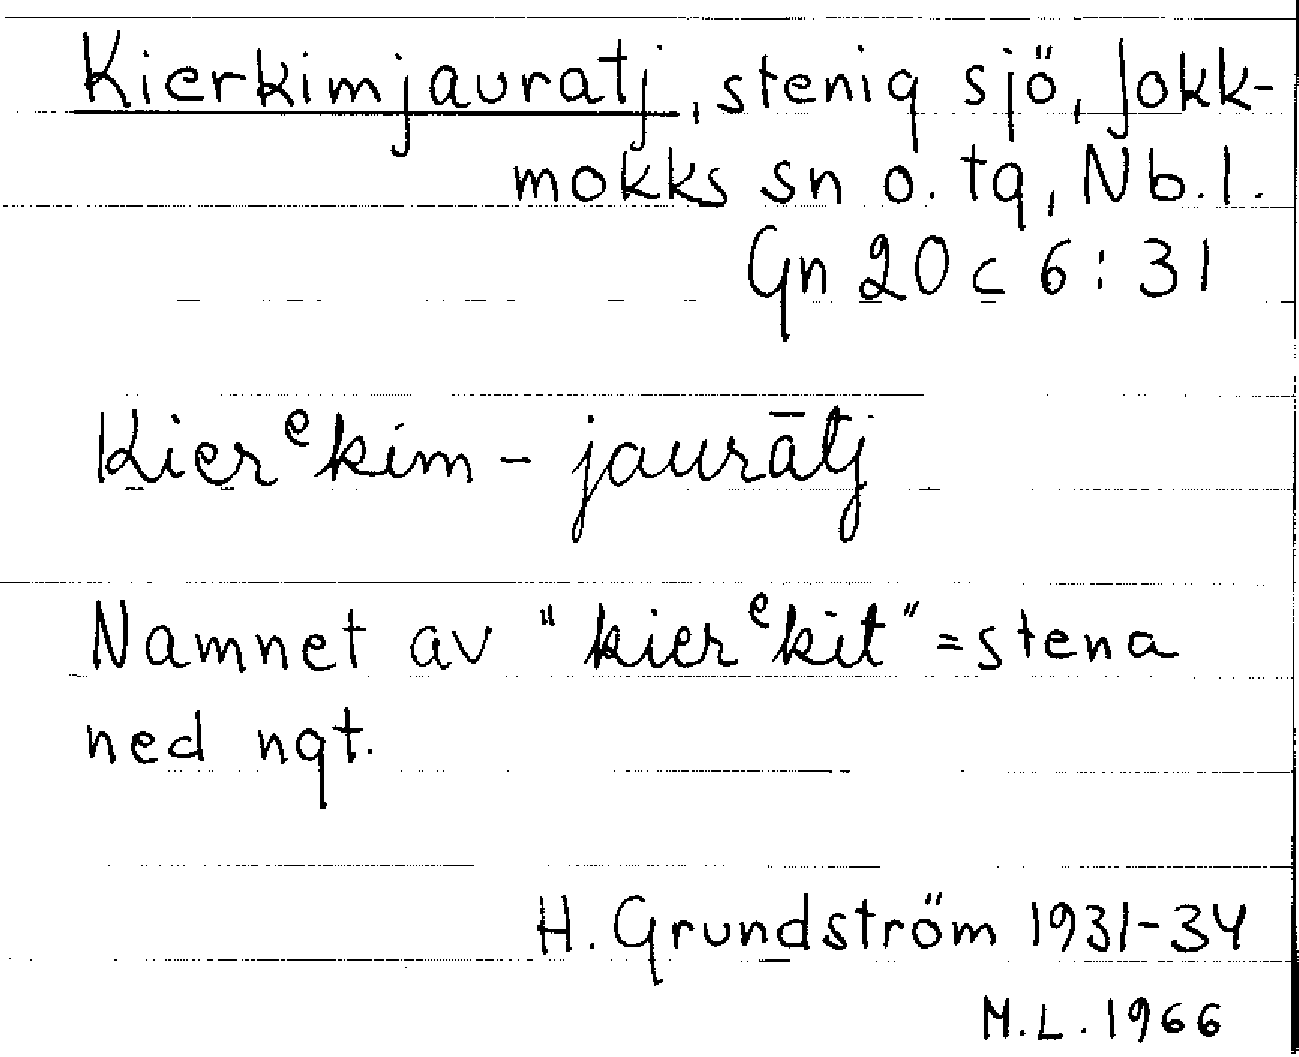 Kierkimjauratj, stenig sjö, Jokk-
mokks sn o. tg, Nb.l.
Gn 20 c 6:31
Kierᵉkim - jaurātj
Namnet av "kierᵉkit" = stena
ned ngt.
H. Grundström 1931-34
M.L. 1966